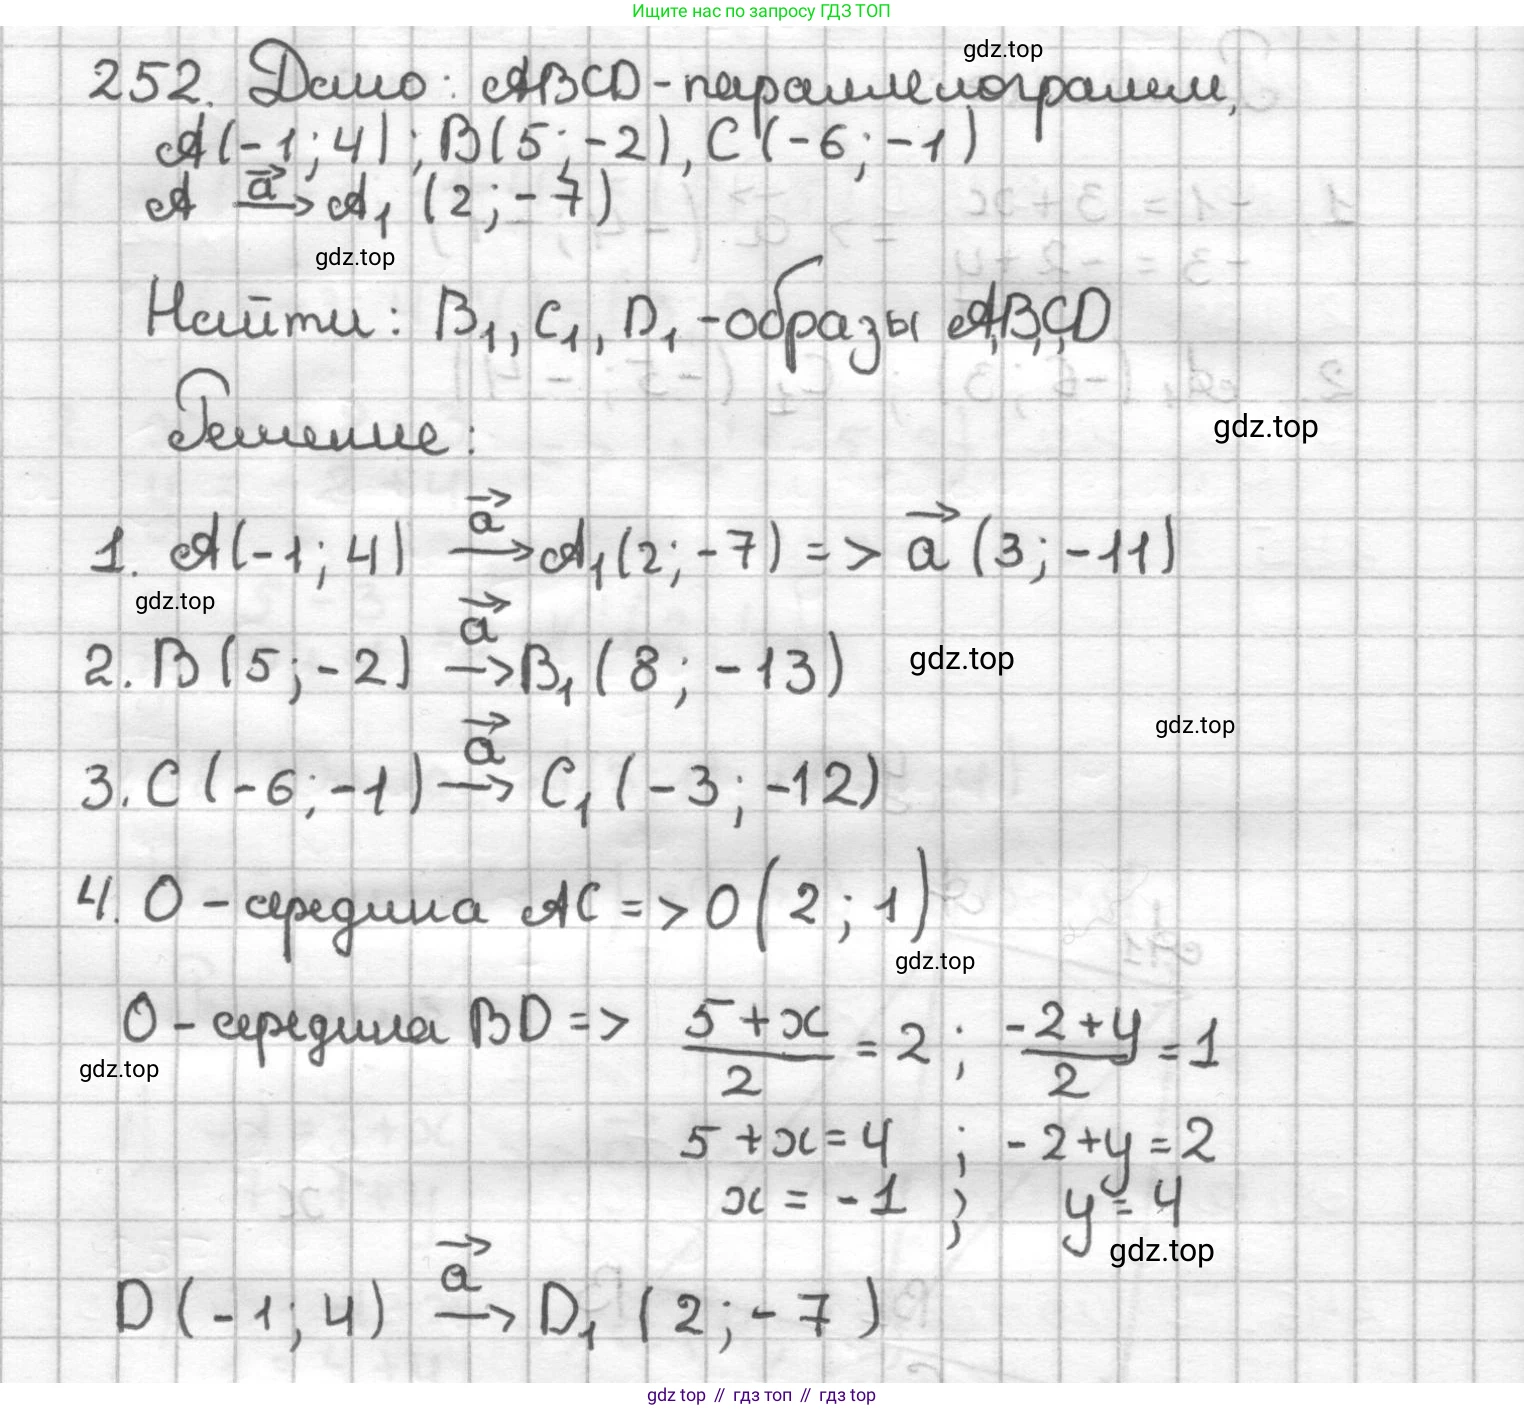 Ищите нас по запросу ГДЗ ТОП
gdz.top
252. Дано: ABCD - параллелограмм,
A(-1; 4); B(5; -2), C(-6; -1)
A →a→ A₁ (2; -7)
gdz.top
Найти: B₁, C₁, D₁ - образы A,B,C,D
gdz.top
Решение:
1. A(-1; 4) →a→ A₁(2; -7) => a⃗ (3; -11)
gdz.top
2. B(5; -2) →a→ B₁ (8; -13)
gdz.top
gdz.top
3. C(-6; -1) →a→ C₁ (-3; -12)
4. O - середина AC => O(2; 1)
gdz.top
O - середина BD => (5+x)/2 = 2; (-2+y)/2 = 1
gdz.top
5+x=4 ; -2+y=2
x = -1 ; y = 4
gdz.top
D(-1; 4) →a→ D₁ (2; -7)
gdz top // гдз топ // гдз top